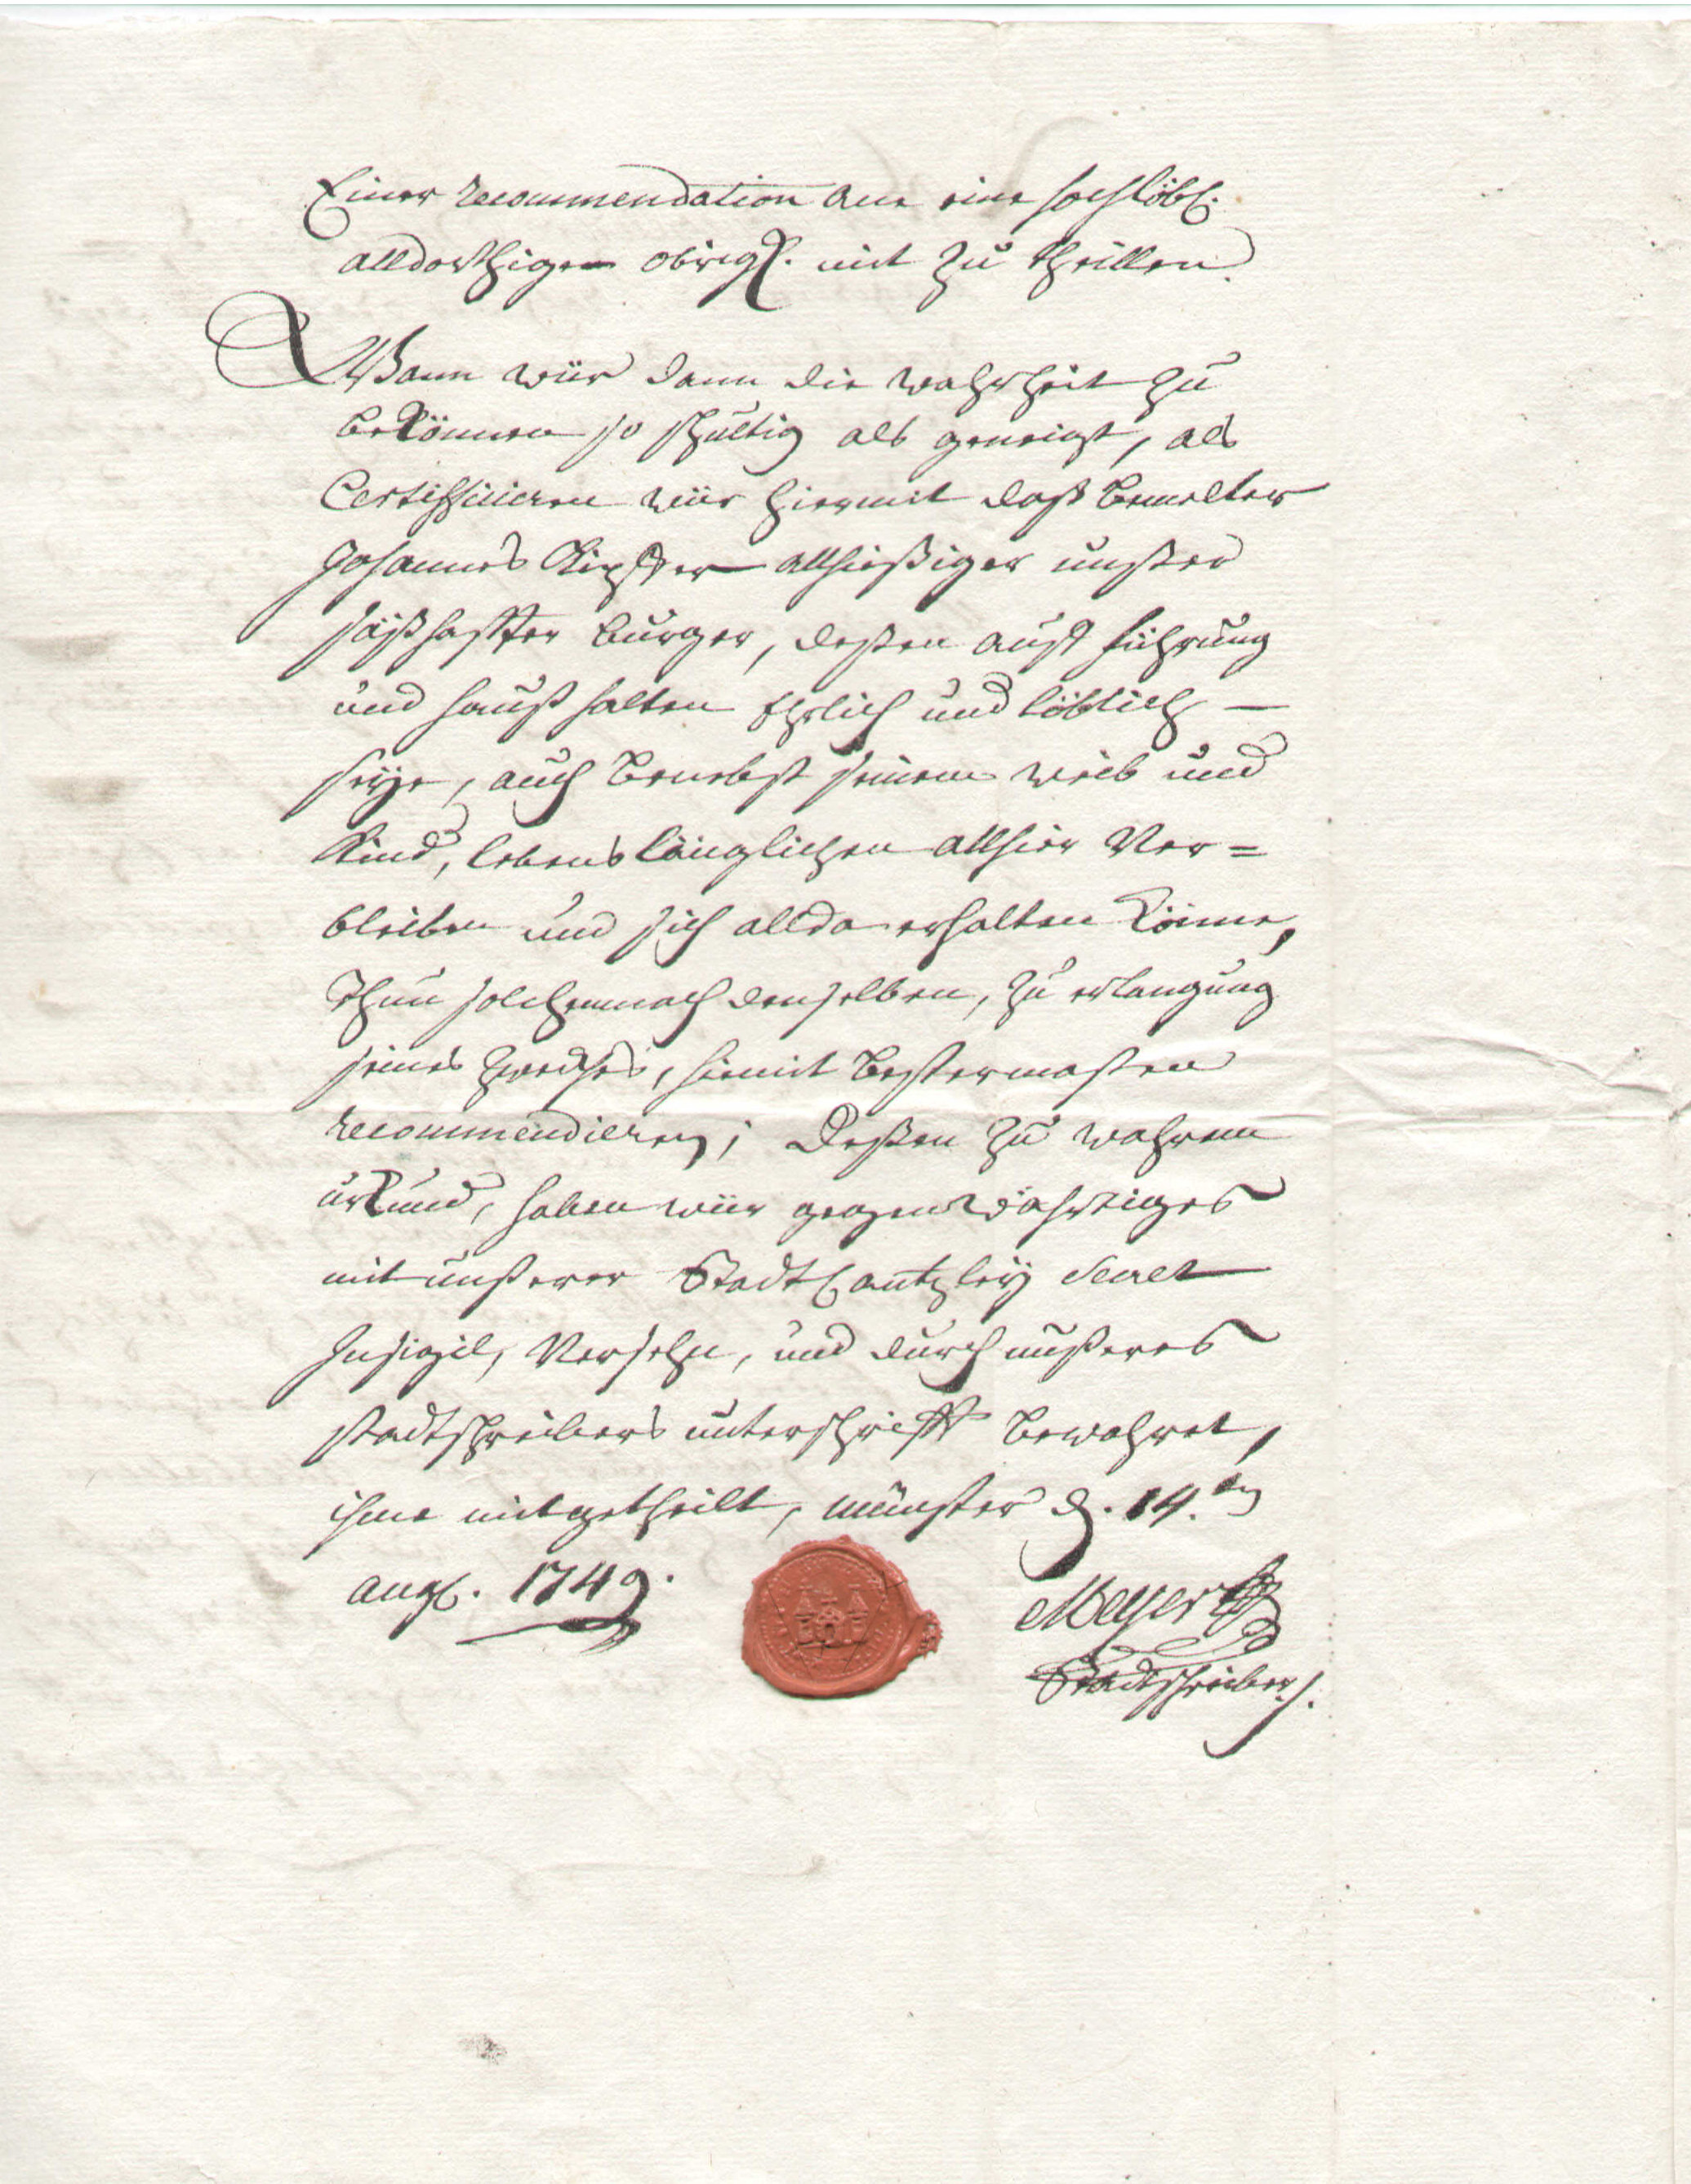 Einer recommendation ane eine hochlöbl.
alldorthigen obrigk. mit zu theillen.
Wann wür dann die wahrheit zu
bekönnen so schultig als geneigt, als
Certificieren wür hiermit daß bemelter
Johannes allhießiger unßer
säßhaffter burger, deßen auff führung
und hauß halten Ehrlich und löblich —
seye, auch benebst seinem weib und
Kind, lebens länglichen allhier Ver=
bleiben und sich allda erhalten könne,
Thun solchemnach denselben, zu erlangung
seines zweckes, hiemit bestermaßen
recommendieren; Deßen zu wahrem
urkund, haben wür gegenwährtiges
mit unßerer Stadt Cantzley Secret
Insigil, Versehn, und durch unßeres
stadtschreibers unterschrifft bewahret,
ihme mitgetheilt, münster d. 14.ten
aug. 1749.
Meyer
Stadtschreiber